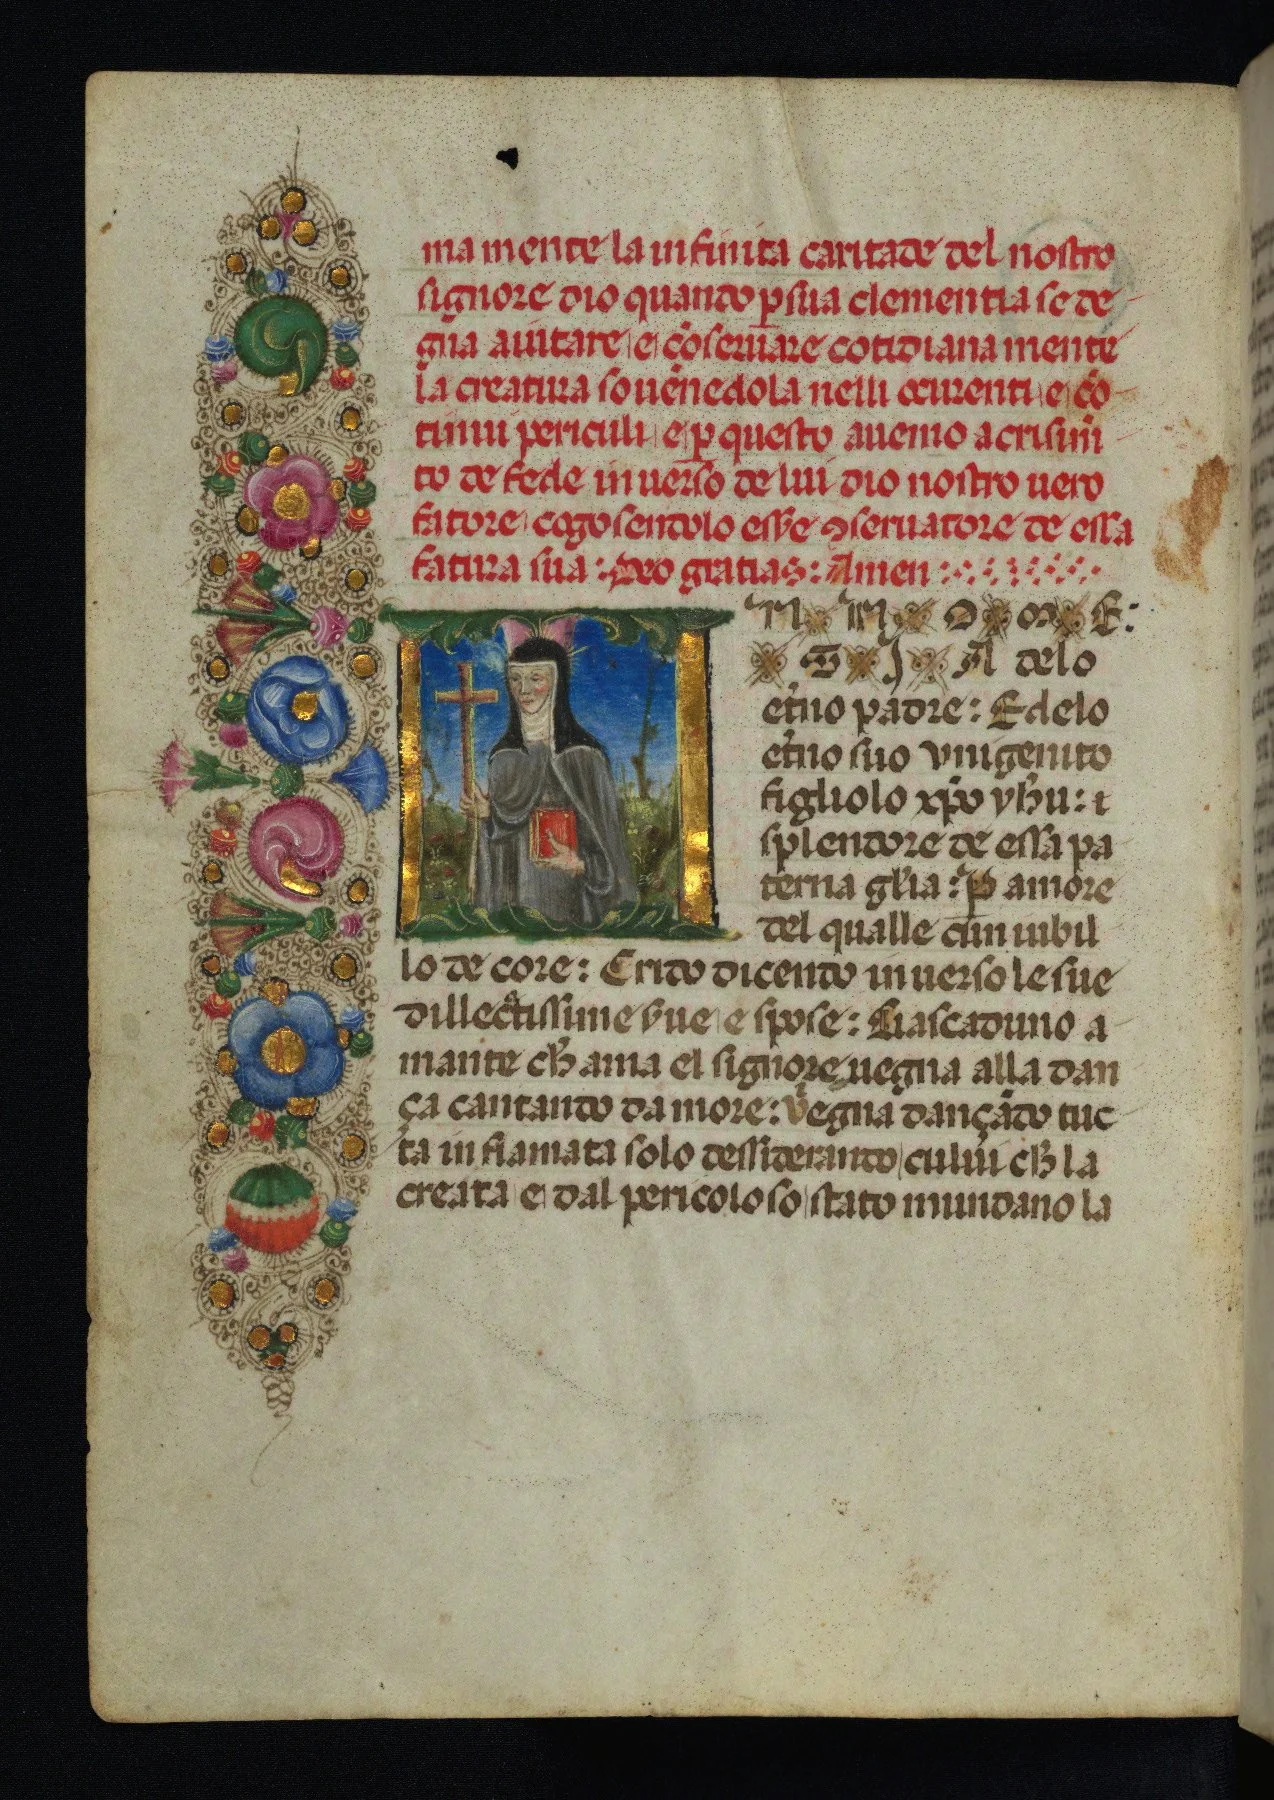 ma mente la infinita caritade del nostro
signore dio quando p̱ sua clementia se de
gna aiutare e cōseruare cotidiana mente
la creatura souenēdola nelli ocurenti e cō
tinui periculi e p̱ questo auemo acrisimē
to de fede in uerso de lui dio nostro uero
fatore cogosendolo ess̄e ꝯseruatore de essa
fatura sua : Deo gratias : Amen :
N N O M E :
S I A delo
et̄no padre : E delo
et̄no suo vnigenito
figliolo xp̄o yh̄u : i
splendore de essa pa
terna gl̄ia : P amore
del qualle cum iubil
lo de core : Crido dicendo in uerso le sue
dillectissime s̄ue e spose : Ciascaduno a
mante ch̄ ama el signore uegna alla dan
ça cantando da more : vegna dançādo tuc
ta in fiamata solo dessiderando culūi ch̄ la
creata e dal pericoloso stato mundano la